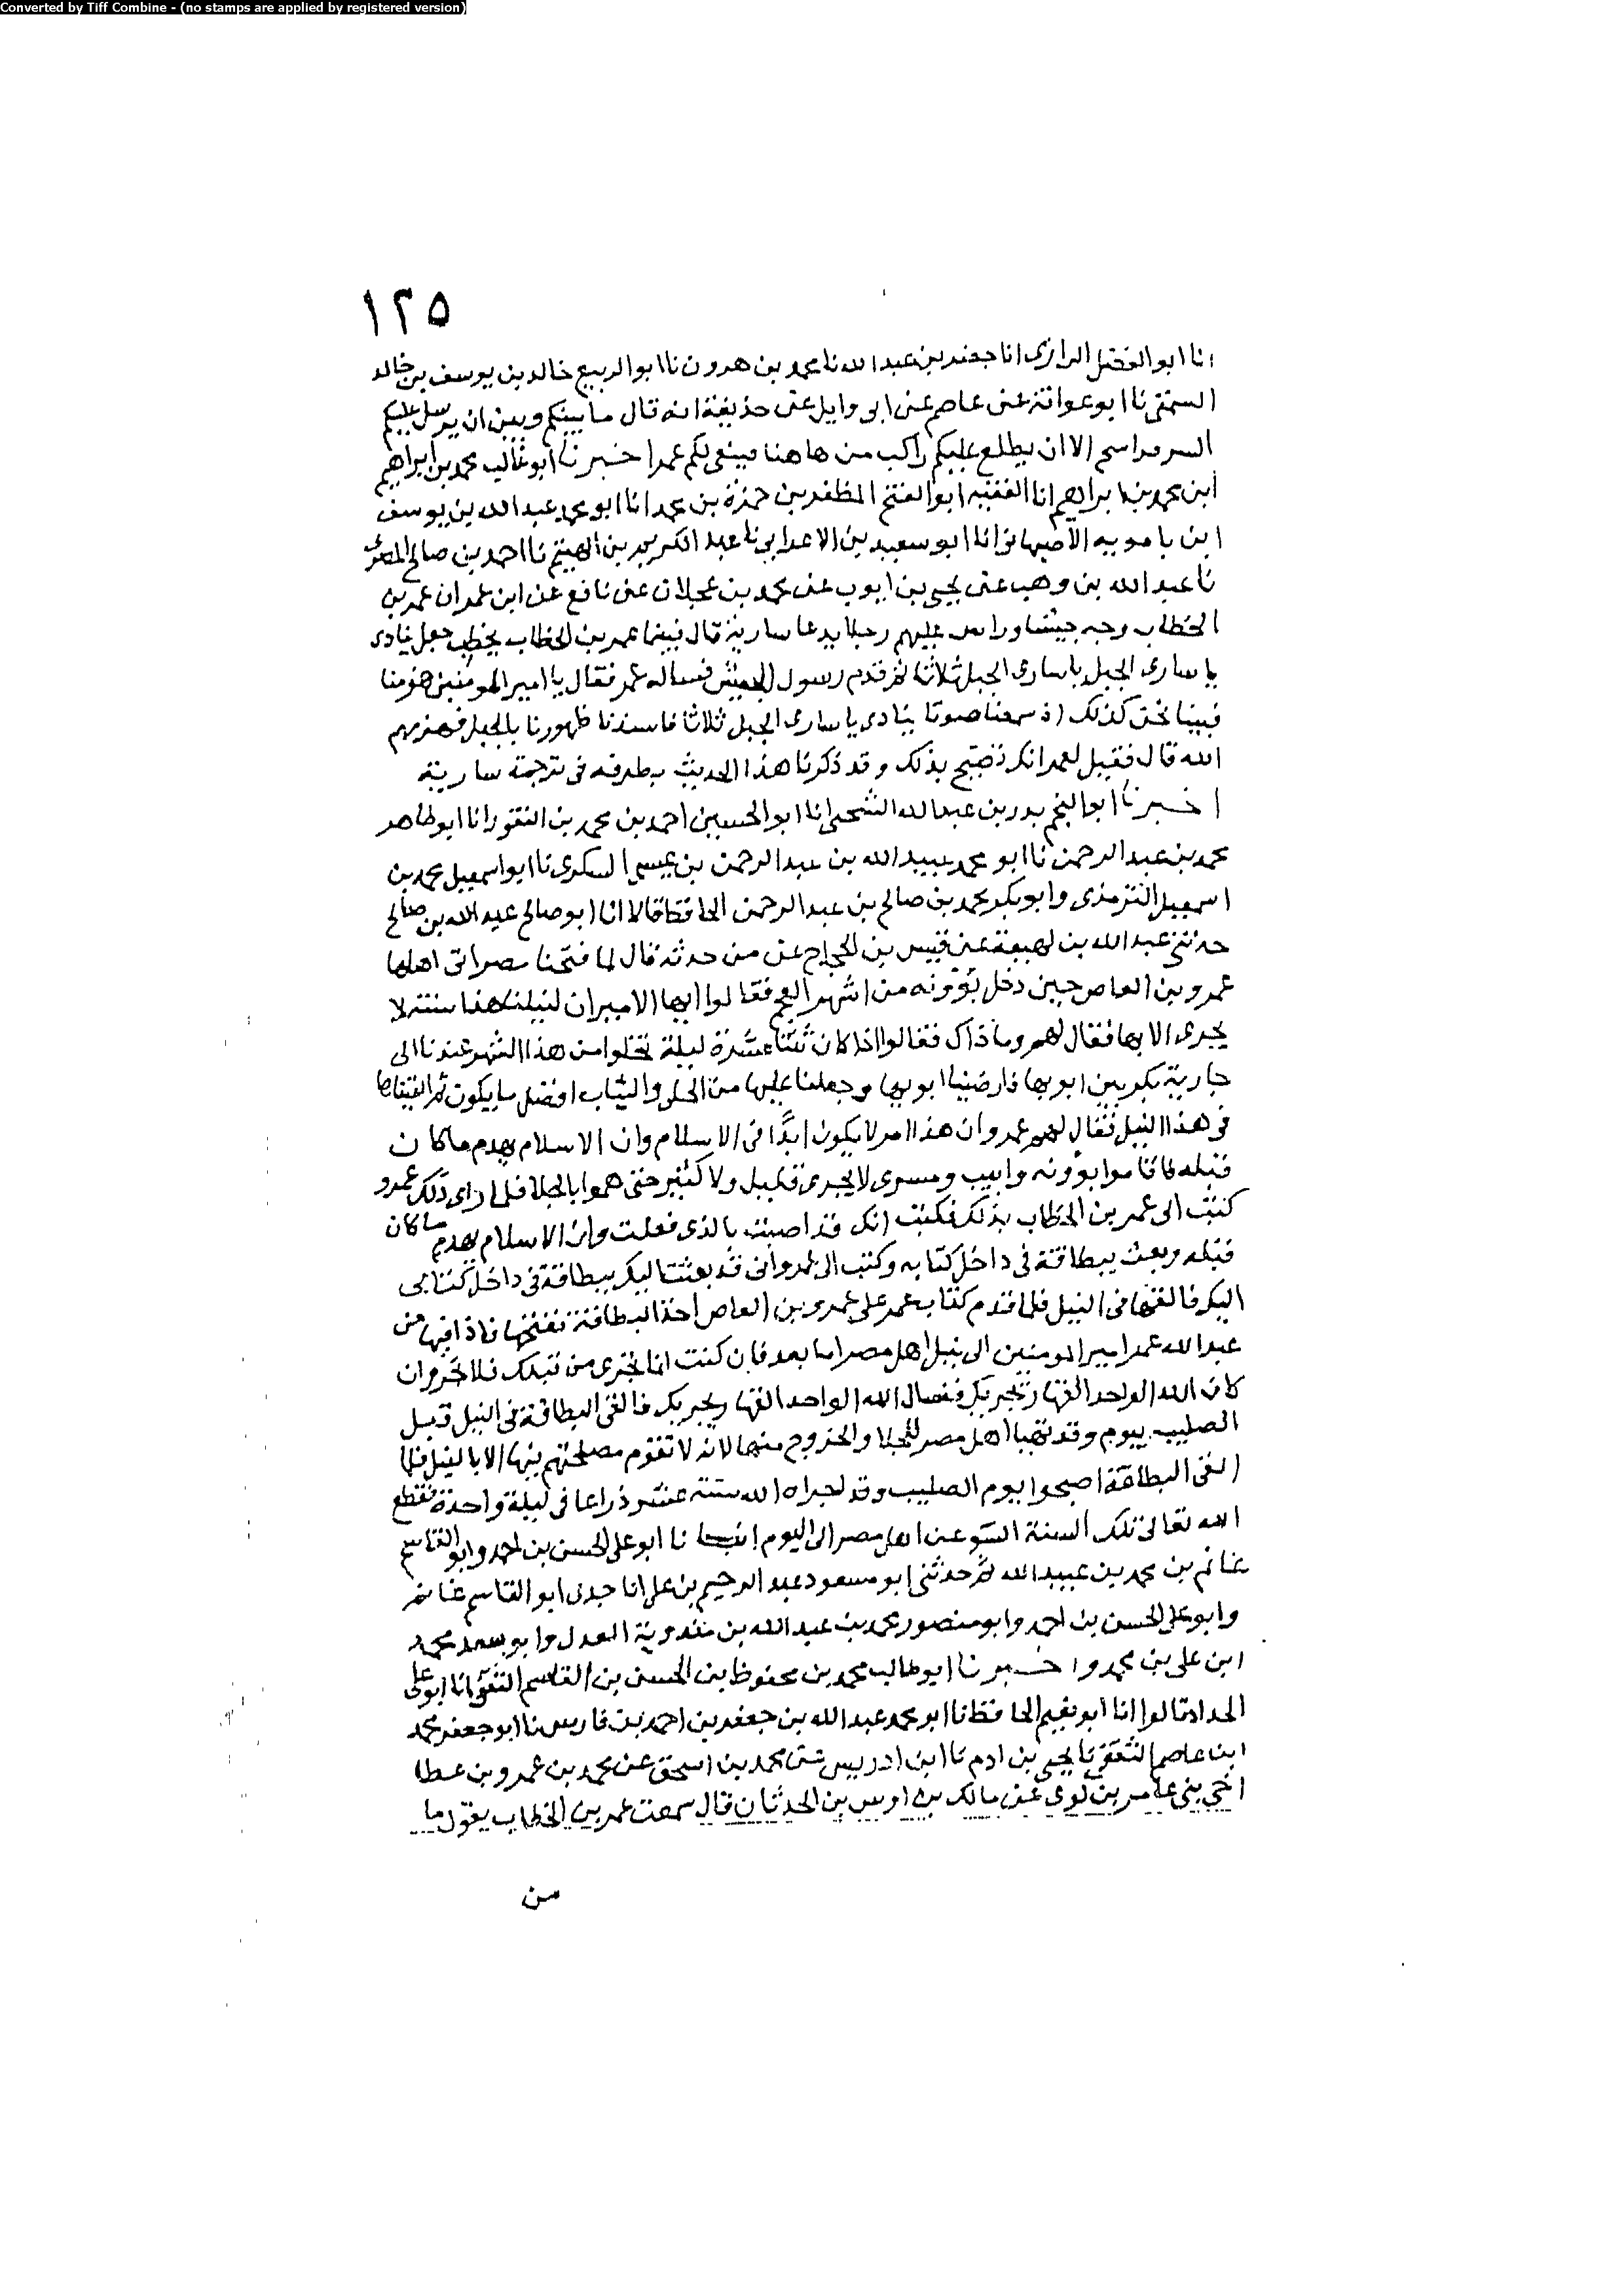 Converted by Tiff Combine - (no stamps are applied by registered version)
١٢٥
انا ابو الفضل الرازي انا جعفر بن عبد الله نا محمد بن هرون نا ابو الربيع خالد بن يوسف بن خالد
السمتي نا ابو عوانة عن عاصم عن ابى وايل عن حذيفة انه قال ما بينكم وبين ان يرسل عليكم
السر مراسم الا ان يطلع عليكم راكب من هاهنا فينعى لكم عمر اخبرنا ابو غالب محمد بن ابراهيم
ابن محمد بن ابراهيم انا الفقيه ابو الفتح المظفر بن حمزة بن محمد انا ابو محمد عبد الله بن يوسف
ابن بامويه الاصبهاني انا ابو سعيد بن الاعرابي نا عبد الكريم بن الهيثم نا احمد بن صالح المصرى
نا عبد الله بن وهب عن يحيى بن ايوب عن محمد بن عجلان عن نافع عن ابن عمر ان عمر بن
الخطاب وجه جيشا وراس عليهم رجلا يدعا سارية قال فبينما عمر بن الخطاب يخطب جعل ينادى
يا سارى الجبل يا سارى الجبل ثلاثا ثم قدم رسول الجيش فساله عمر فقال يا امير المومنين هزمنا
فبينا نحن كذلك اذ سمعنا صوتا ينادى يا سارى الجبل ثلاثا فاسندنا ظهورنا بالجبل فهزمهم
الله قال فقيل لعمر انك تصيح بذلك وقد ذكرنا هذا الحديث بطرقه في ترجمة سارية
اخبرنا ابو النجم بدر بن عبد الله الشيحى انا ابو الحسين احمد بن محمد بن النقور انا ابو طاهر
محمد بن عبد الرحمن نا ابو محمد عبيد الله بن عبد الرحمن بن عيسى السكرى نا ابو اسمعيل محمد بن
اسمعيل الترمذى وابو بكر محمد بن صالح بن عبد الرحمن الحافظ قالا انا ابو صالح عبد الله بن صالح
حدثنى عبد الله بن لهيعة عن قيس بن الحجاج عن من حدثه قال لما فتحنا مصر اتى اهلها
عمرو بن العاص حين دخل بؤونه من اشهر العجم فقالوا ايها الامير ان لنيلنا هذا سنة لا
يجرى الا بها فقال لهم وما ذاك فقالوا اذا كان ثنتا عشرة ليلة تخلوا من هذا الشهر عمدنا الى
جارية بكر بين ابويها فارضينا ابويها وجعلنا عليها من الحلى والثياب افضل ما يكون ثم القيناها
فى هذا النيل فقال لهم عمرو ان هذا امر لا يكون ابدًا فى الاسلام وان الاسلام يهدم ما كان
قبله فاقاموا بؤونه وابيب ومسرى لا يجرى قليل ولا كثير حتى هموا بالجلا فلما راى ذلك عمرو
كتب الى عمر بن الخطاب بذلك فكتب انك قد اصبت بالذى فعلت وان الاسلام يهدم ما كان
قبله وبعث ببطاقة فى داخل كتابه وكتب الى عمرو انى قد بعثت اليك ببطاقة فى داخل كتابى
اليك فالقها فى النيل فلما قدم كتاب عمر على عمرو بن العاص اخذ البطاقة ففتحها فاذا فيها من
عبد الله عمر امير المومنين الى نيل اهل مصر اما بعد فان كنت انما تجرى من قبلك فلا تجر وان
كان الله الواحد القهار يجريك فنسال الله الواحد القهار يجريك فالقى البطاقة فى النيل قبل
الصليب بيوم وقد تهيا اهل مصر للجلا والخروج منها لانه لا تقوم مصلحتهم فيها الا بالنيل فلما
القى البطاقة اصبحوا يوم الصليب وقد اجراه الله ستة عشر ذراعا فى ليلة واحدة فقطع
الله تعالى تلك السنة السو عن اهل مصر الى اليوم انبانا ابو على الحسن بن احمد وابو القاسم
غانم بن محمد بن عبيد الله ثم حدثنى ابو مسعود عبد الرحيم بن على انا جدى ابو القاسم غانم
وابو على الحسن بن احمد وابو منصور محمد بن عبد الله بن مندوية العدل وابو سعد محمد
ابن على بن محمد واخبرنا ابو طالب محمد بن محفوظ بن الحسن بن القاسم الثقفى انا ابو على
الحداد قالوا انا ابو نعيم الحافظ نا ابو محمد عبد الله بن جعفر بن احمد بن فارس نا ابو جعفر محمد
ابن عاصم الثقفى نا يحيى بن ادم نا ابن ادريس عن محمد بن اسحق عن محمد بن عمرو بن عطا
اخى بنى عامر بن لوى عن مالك بن اوس بن الحدثان قال سمعت عمر بن الخطاب يقول ما
من